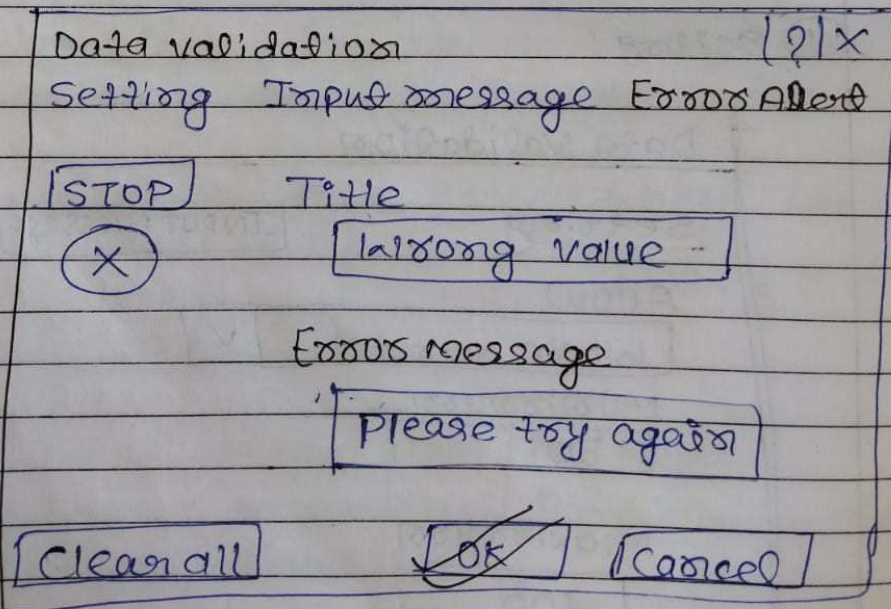 Data validation ? X
Setting Input message Error Alert
STOP Title
X Wrong value
Error message
Please try again
Clear all OK Cancel